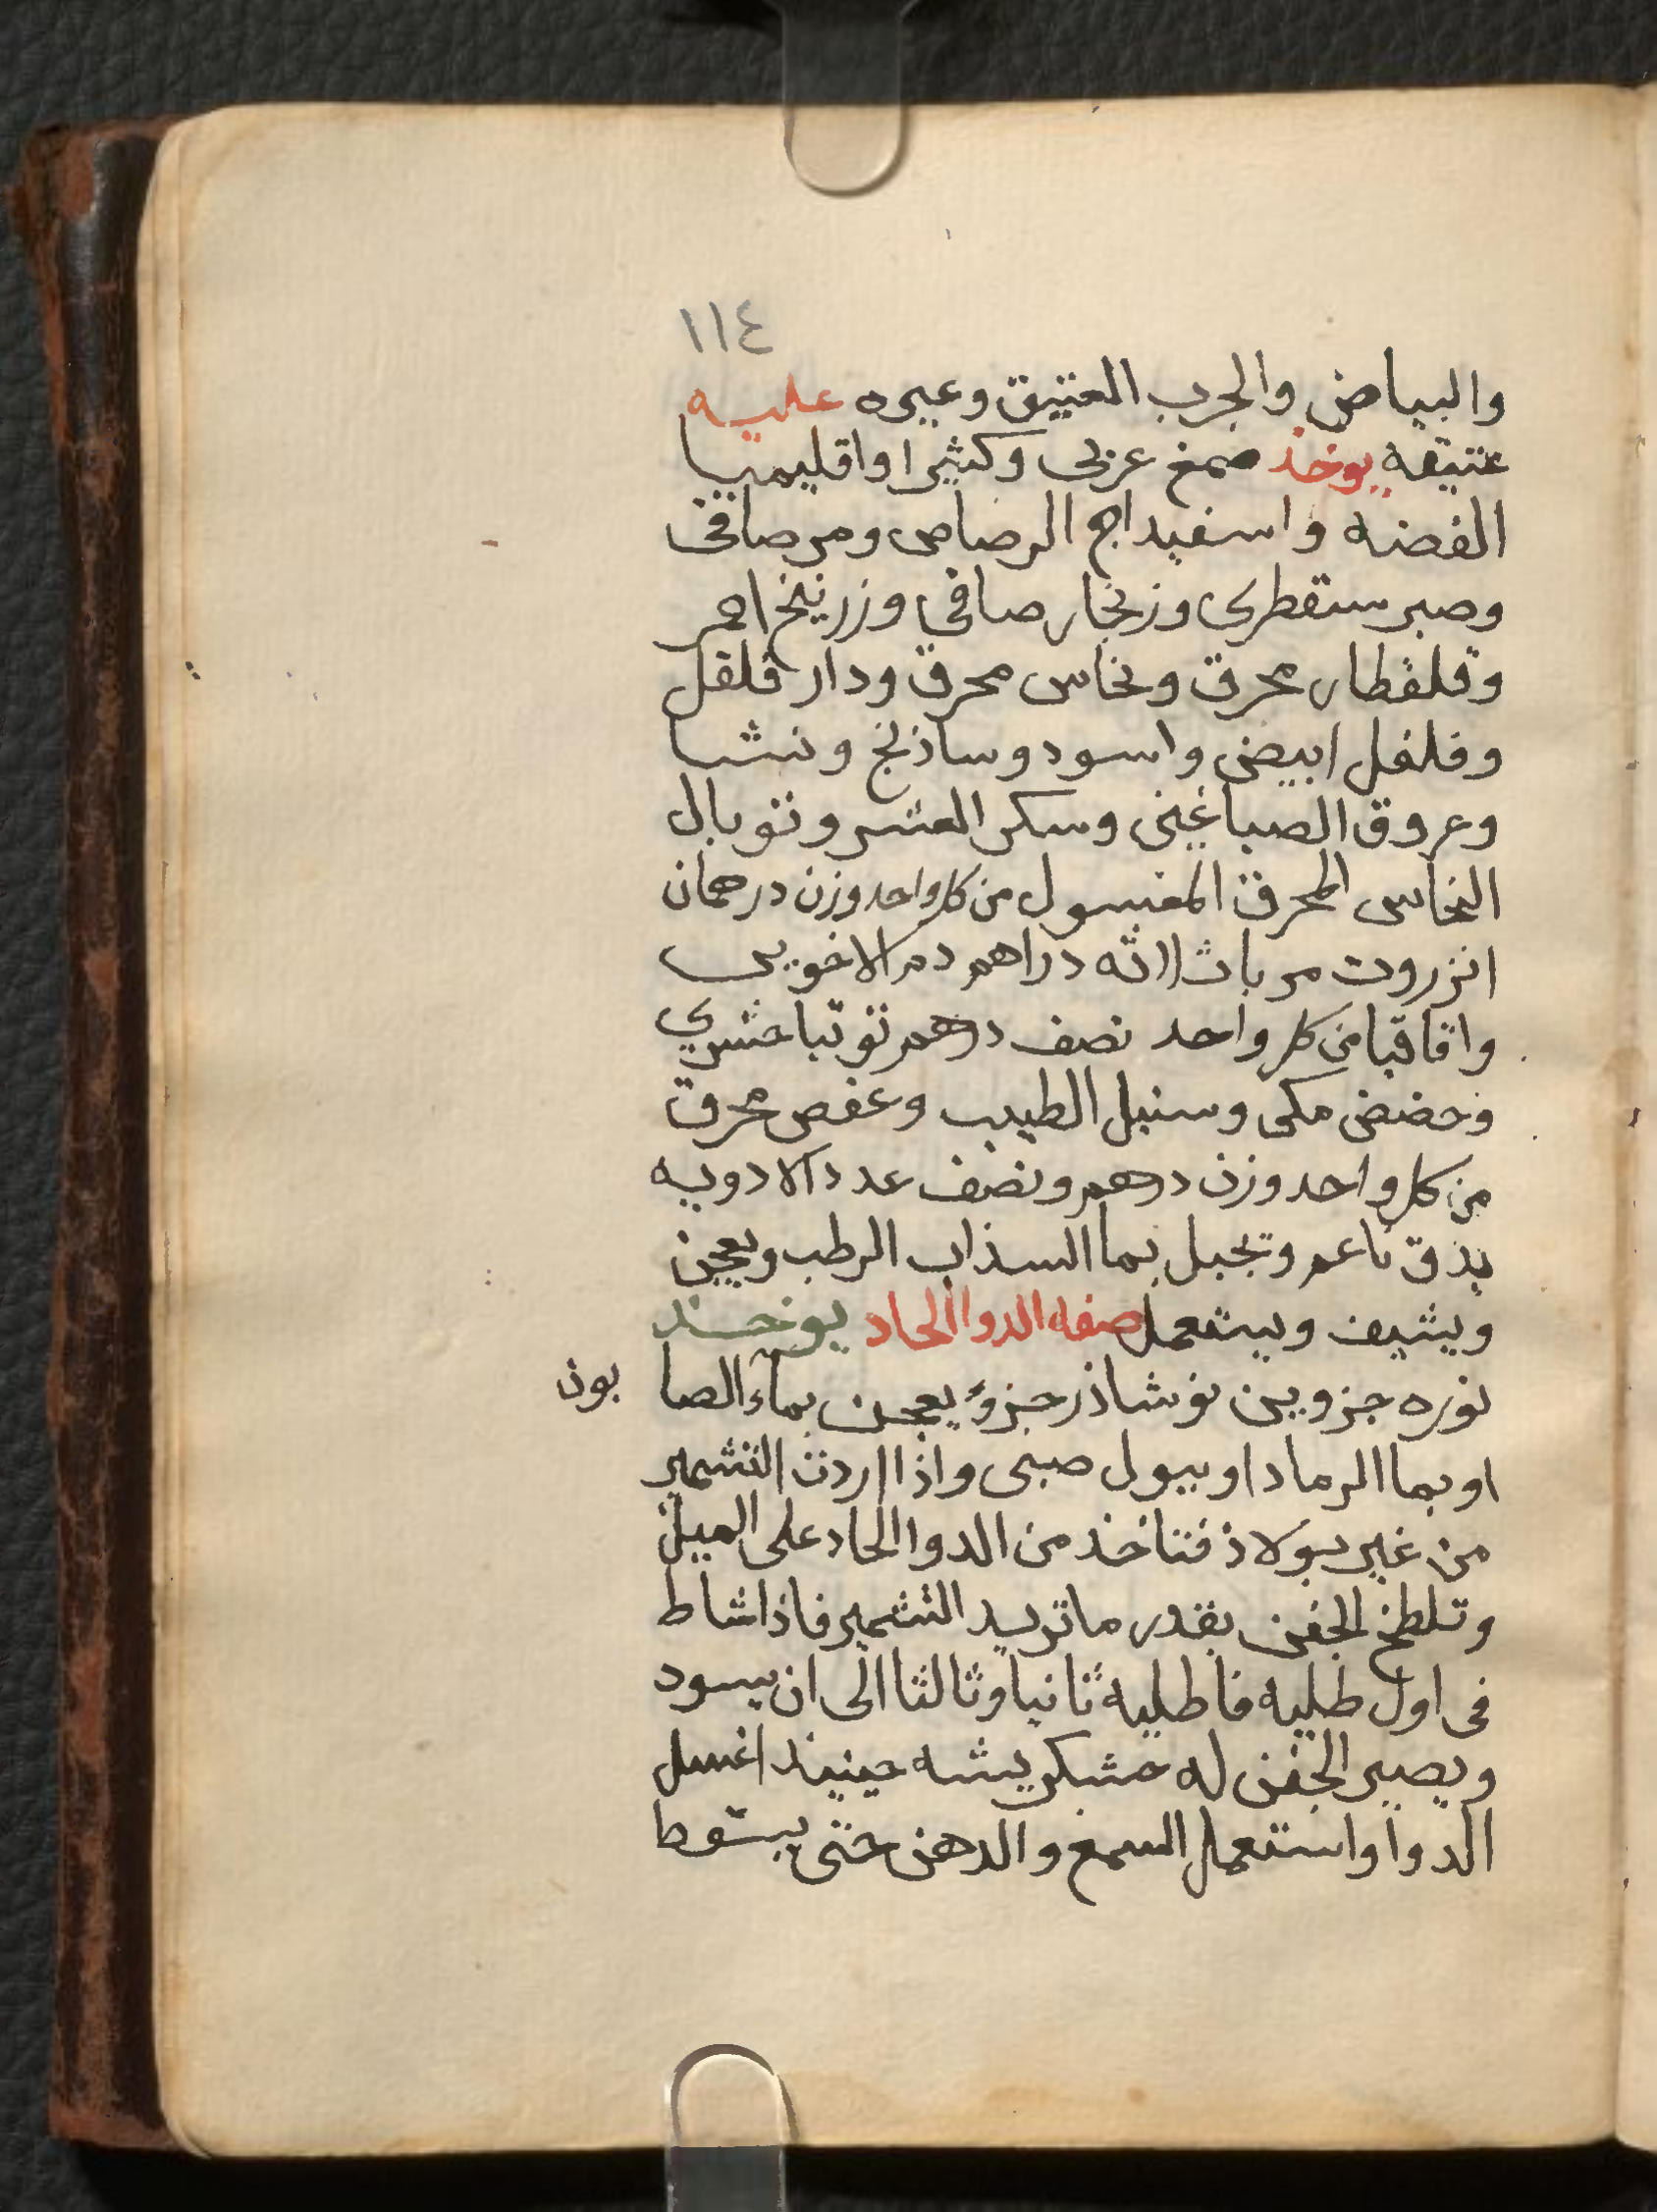 ١١٤
والبياض والجرب العتيق وغيره عليه
عتيقه يوخذ صمغ عربى وكثيرا واقليميا
الفضه واسفيداج الرصاص ومر صافى
وصبر سقطرى وزنجار صافي وزرنيخ احمر
وقلقطار محرق ونحاس محرق ودار فلفل
وفلفل ابيض واسود وساذنج ونشا
وعروق الصباغين وسكر العشر وتوبال
النحاس المحرق المغسول من كل واحد وزن درهمان
انزروت مربا ثلاثه دراهم دم الاخوين
واقاقيا من كل واحد نصف درهم توتيا حشري
وحضض مكى وسنبل الطيب وعفص محرق
من كل واحد وزن درهم ونصف عدد الادويه
يدق ناعم وتجبل بما السذاب الرطب ويعجن
ويشيف ويستعمل صفه الدوا الحاد يوخذ
نوره جزوين نوشاذر جزؤ يعجن بماء الصا بون
او بما الرماد او ببول صبى واذا اردت التشمير
من غير بولاذ فتاخذ من الدوا الحاد على الميل
وتلطخ الجفن بقدر ما تريد التشمير فاذا شاط
فى اول طليه فاطليه ثانيا وثالثا الى ان يسود
ويصير الجفن له خشكريشه حينيذ اغسل
الدوا واستعمل السمغ والدهن حتى يسقوط